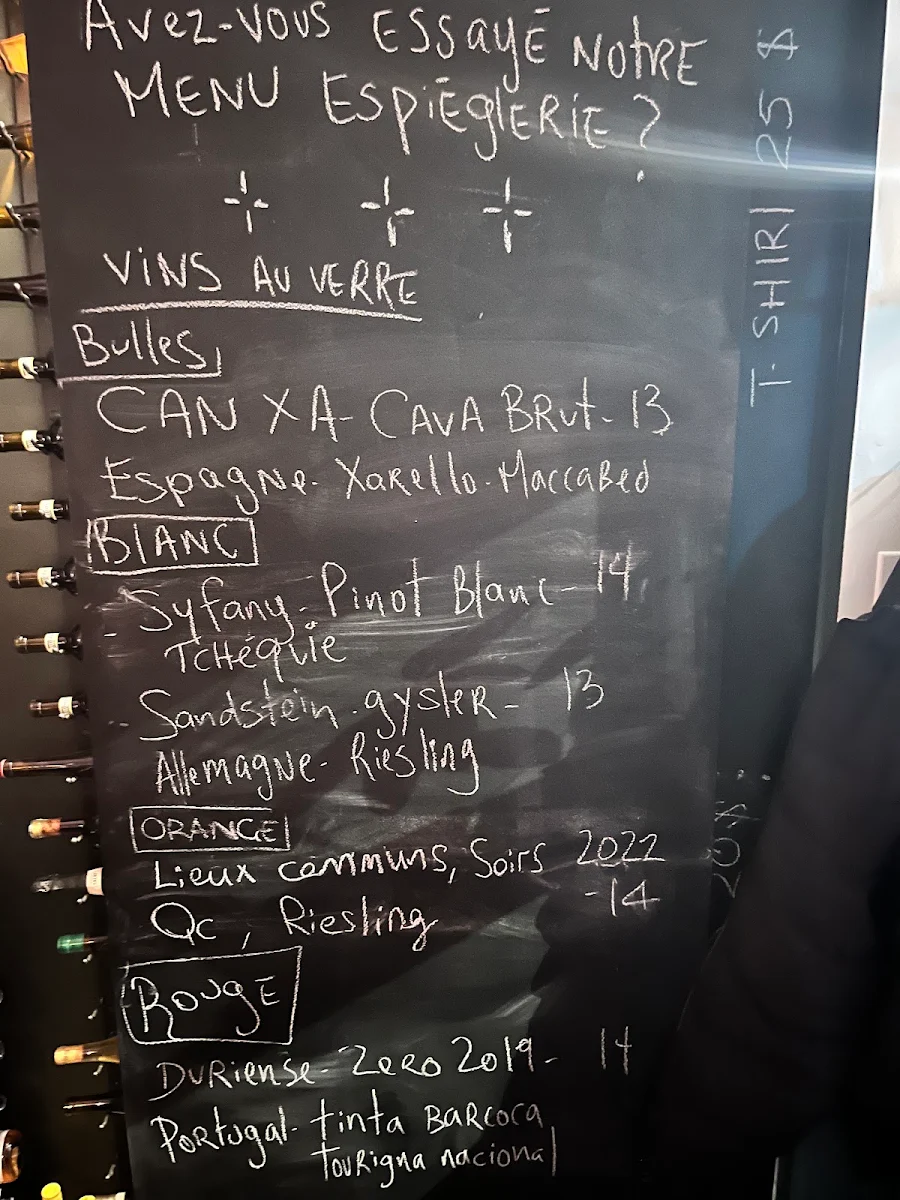 AVEZ-VOUS ESSAYÉ NOTRE
MENU ESPIÈGLERIE ?
VINS AU VERRE
Bulles
CAN XA - CAVA BRUT - 13
Espagne - Xarello - Maccabeo
BLANC
- Syfany - Pinot Blanc - 14
Tchéquie
- Sandstein - gysler - 13
Allemagne - Riesling
ORANGE
Lieux communs, Soirs 2022
- 14
Qc, Riesling
ROUGE
DURIENSE - Zero 2019 - 14
Portugal - tinta BARCOCA
touRigna nacional
T-SHIRT 25 $
20$